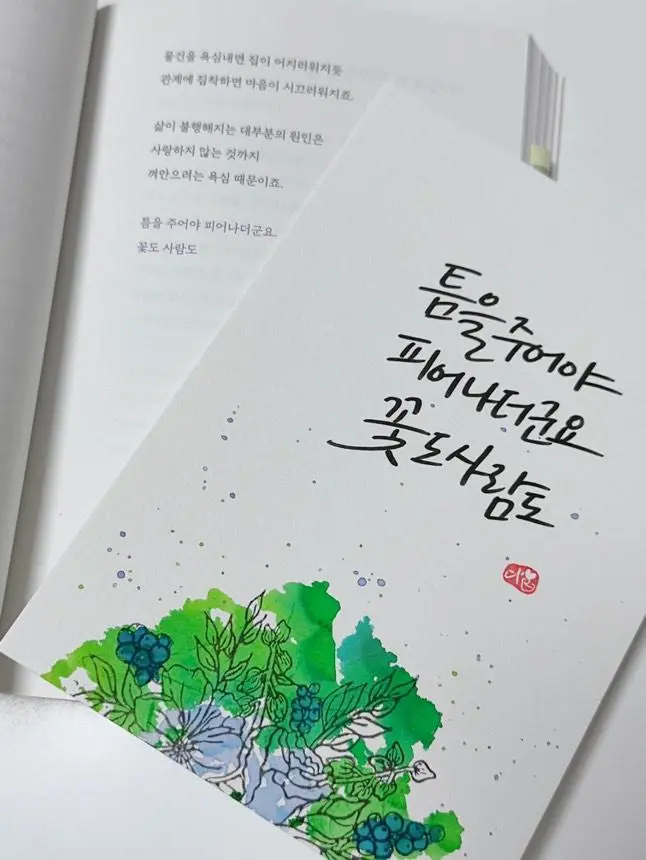 물건을 욕심내면 집이 어지러워지듯
관계에 집착하면 마음이 시끄러워지죠.
삶이 불행해지는 대부분의 원인은
사랑하지 않는 것까지
껴안으려는 욕심 때문이죠.
틈을 주어야 피어나더군요.
꽃도 사람도
틈을주어야
피어나더군요
꽃도사람도